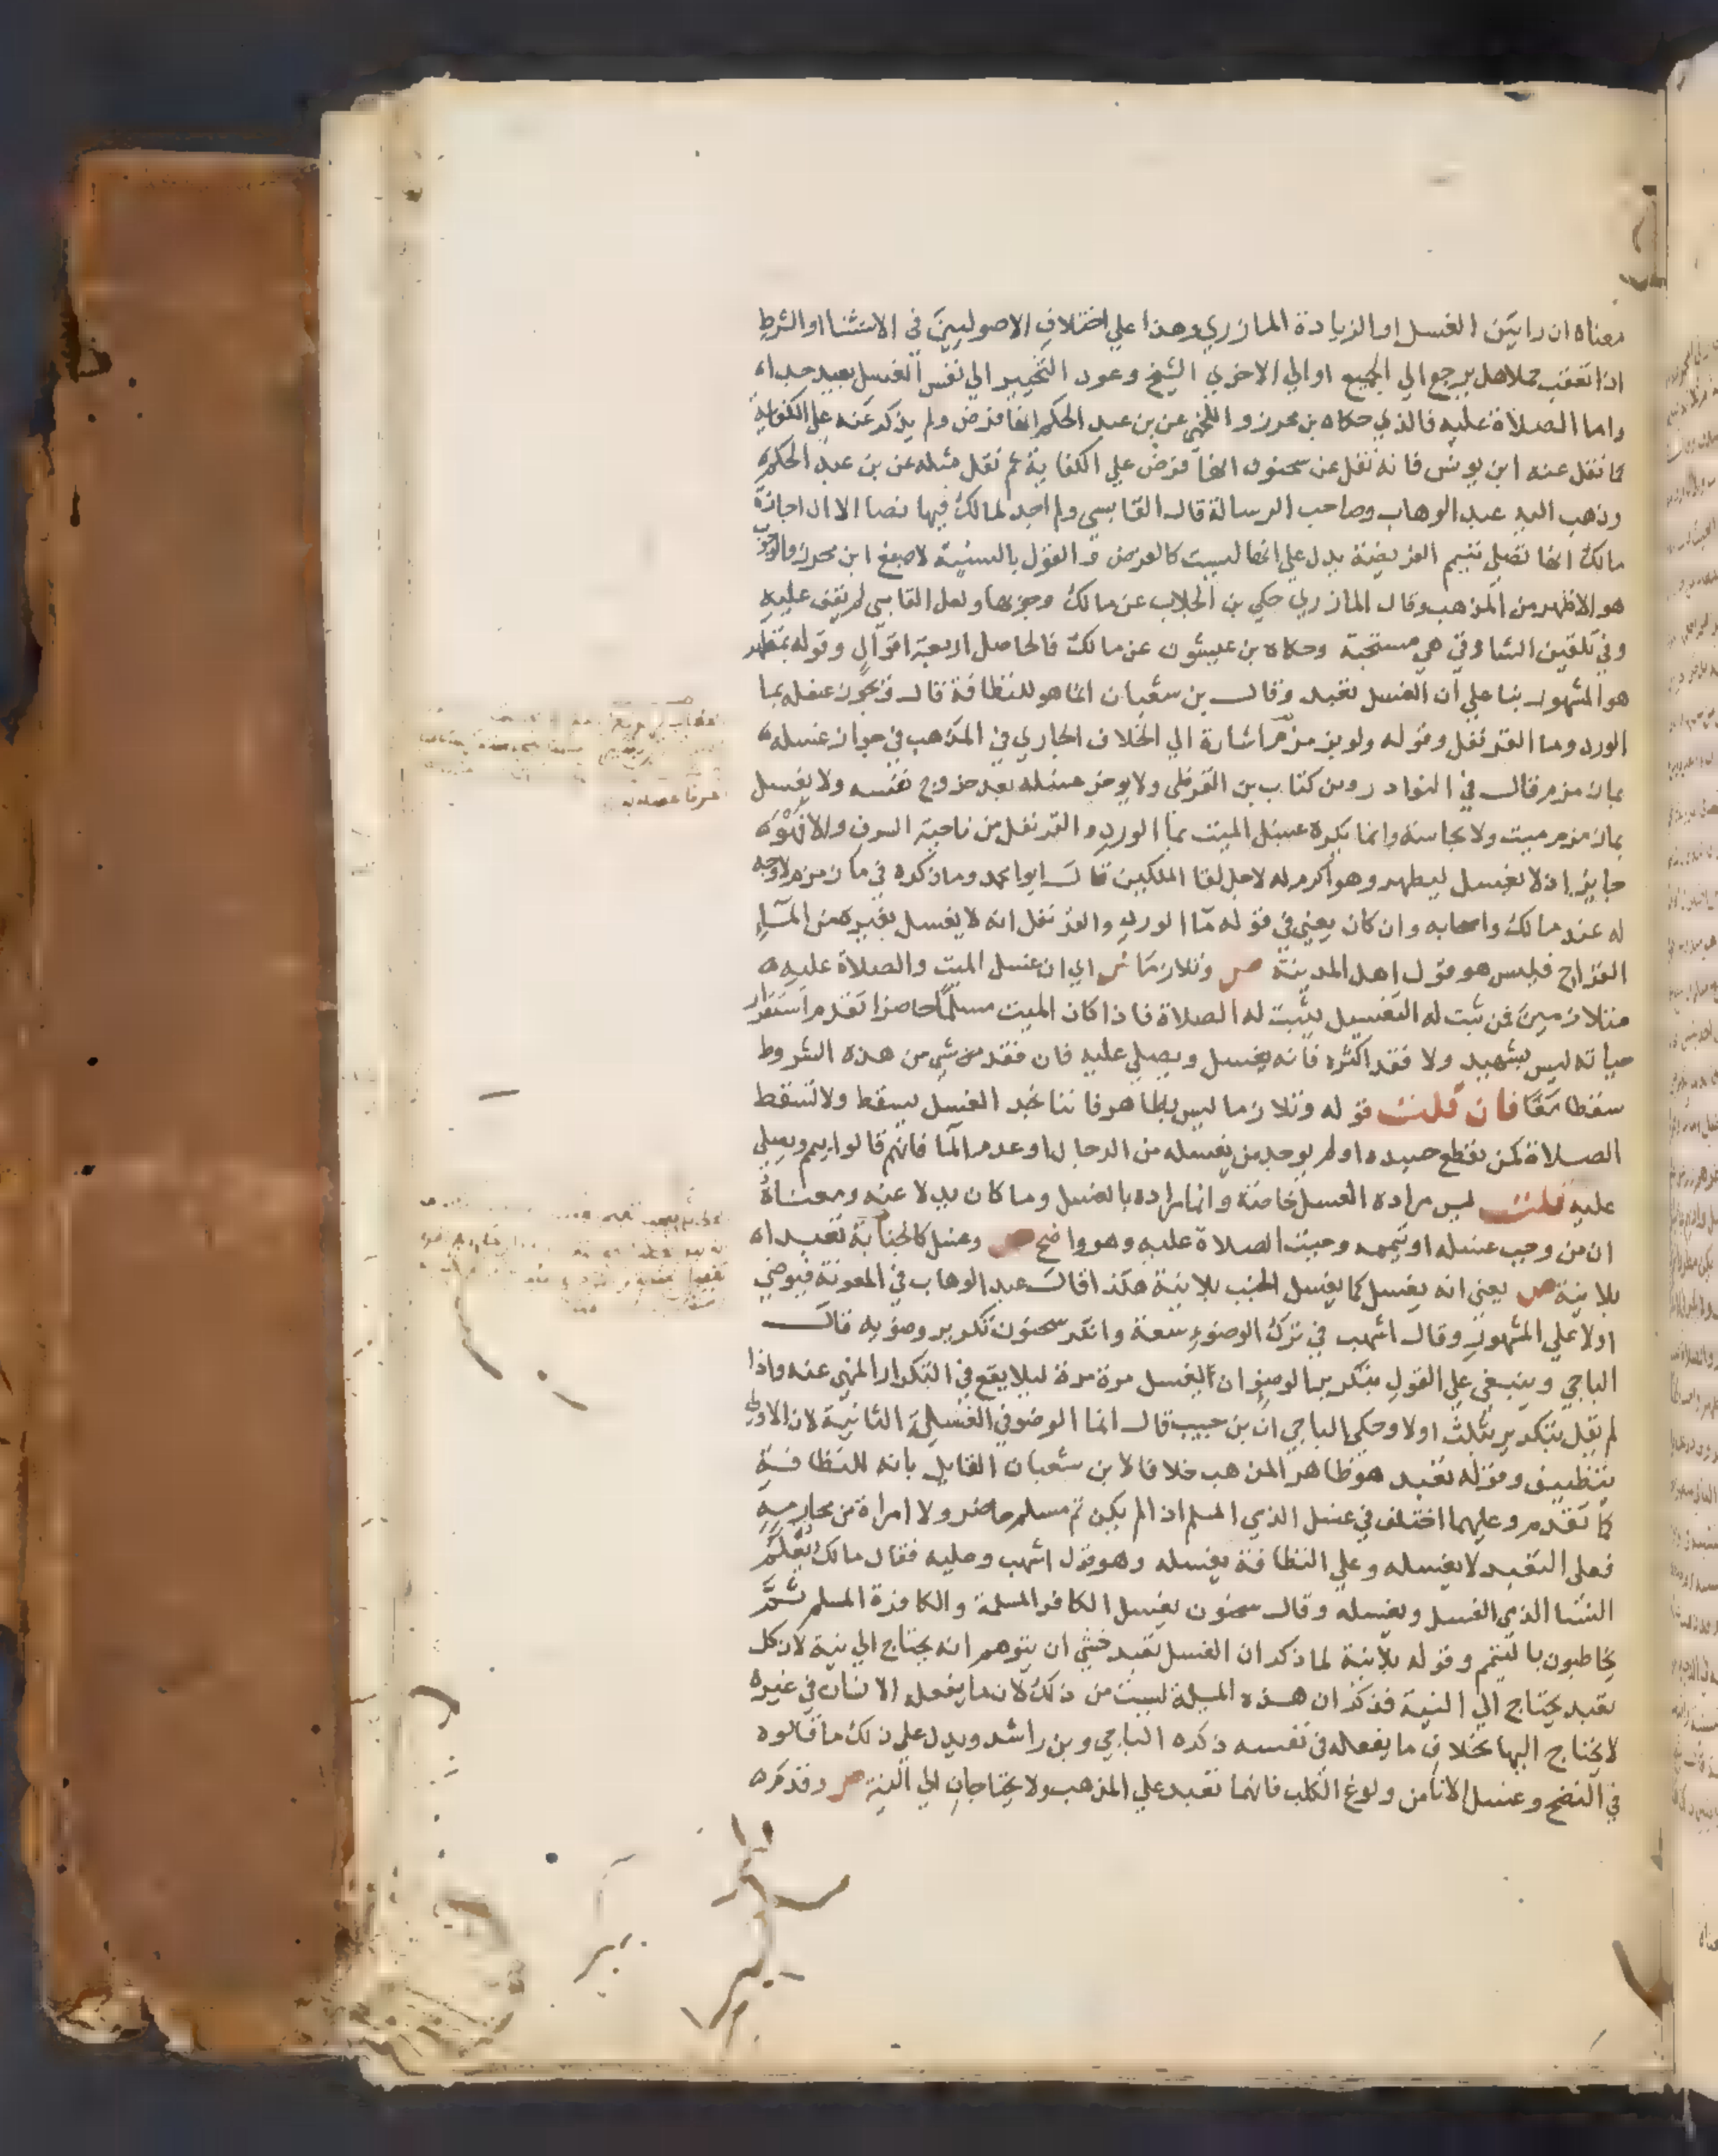 معناه ان رايتن الغسل او الزيادة المازري وهذا علي اختلاف الاصوليين في الاستثنا او الشرط
اذا تعقب جملا هل يرجع الي الجميع او الي الاخري الشيخ وعود التخيير الي نفس الغسل بعيد جدا ه
واما الصلاة عليه فالذي حكاه بن محرز و اللخمي عن بن عبد الحكم انها فرض ولم يذكر عنه علي الكفاية
كما نقل عنه ابن يونس فانه نقل عن سحنون انها فرض علي الكفاية ثم نقل مثله عن بن عبد الحكم ه
وذهب اليه عبد الوهاب وصاحب الرسالة قال القابسي ولم اجد لمالك فيها نصا الا ان اجازة
مالك انها تصلي بتيمم الفريضة يدل علي انها ليست كالفرض و القول بالسنية لاصبغ ابن محرز والوجوب
هو الاظهر من المذهب وقال المازري حكي بن الجلاب عن مالك وجوبها ولعل القابسي لم يقف عليه
وفي تلقين الشارقي هي مستحبة وحكاه بن عيشون عن مالك فالحاصل اربعة اقوال وقوله بمطهر
هو المشهور بنا علي ان الغسل تعبد وقال بن شعبان انما هو للنظافة قال فيجوز غسله بما
الورد وما القرنفل وقوله ولو بزمزم اشارة الي الخلاف الجاري في المذهب في جواز غسله ه
بماء زمزم فقال في النوادر ومن كتاب بن القرظي ولا يوخر غسله بعد خروج نفسه ولا يغسل
بماء زمزم ميت ولا نجاسة وانما يكره غسل الميت بما الورد و القرنفل من ناحية السرف والا فهو ه
جايز اذ لا يغسل ليطهر وهو اكرم له لاجل لقا الملكين قال ابوا محمد وما ذكره في ما زمزم لا وجه
له عند مالك واصحابه وان كان يعني في قوله ما الورد والقرنفل انه لا يغسل بغيره من المآء
القراح فليس هو قول اهل المدينة ص وتلازما ش اي ان غسل الميت والصلاة عليه ه
متلازمين فمن ثبت له التغسيل يثبت له الصلاة فاذا كان الميت مسلما حاضرا تقدم استقرار
حياته ليس بشهيد ولا فقد اكثره فانه يغسل ويصلي عليه فان فقد من شي من هذه الشروط
سقطا معًا فان قلت قوله وتلازما ليس بظاهر فاننا نجد الغسل يسقط ولا تسقط
الصلاة كمن تقطع جسده او لم يوجد من يغسله من الرجال او عدم المآ فانهم قالوا ييمم ويصلي
عليه قلت ليس مراده الغسل خاصة وانما مراده بالغسل وما كان بدلا عنه ومعناهُ
ان من وجب غسله او تيممه وجبت الصلاة عليه وهو واضح ص وغسل كالجنابة تعبدا ه
بلا نية ش يعني انه يغسل كما يغسل الجنب بلا نية هكذا قال عبد الوهاب في المعونة فيوضي
اولا علي المشهور وقال اشهب في ترك الوضوء سعة وانكر سحنون تكرير وضويه قال
الباجي وينبغي علي القول بتكرير الوضو ان الغسل مرة مرة ليلا يقع في التكرار المنهي عنه واذا
لم يقل بتكرير يثلث اولا وحكي الباجي ان بن حبيب قال انما الوضو في الغسلة الثانية لان الاولي
تنظيف وقوله تعبد هو ظاهر المذهب خلافا لابن شعبان القايل بانه للنظافة
كما تقدم وعليهما اختلف في غسل الذمي المسلم اذا لم يكن ثم مسلم حاضر ولا امراة من محارمه
فعلي التعبد لا يغسله وعلي النظافة يغسله وهو قول اشهب وعليه فقال مالك يعلم
النسا الذمي الغسل ويغسله وقال سحنون يغسل الكافر المسلمة والكافرة المسلم ثم
يحاطبون بالتيمم وقوله بلا نية لما ذكر ان الغسل تعبد خشي ان يتوهم انه يحتاج الي نية لان كل
تعبد يحتاج الي النية فذكر ان هذه المسلة ليست من ذلك لان ما يفعله الانسان في غيره
لا يحتاج اليها بخلاف ما يفعله في نفسه ذكره الباجي و بن راشد ويدل علي ذلك ما قالوه
في النضح و غسل الانا من ولوغ الكلب فانهما تعبد علي المذهب ولا يحتاجان الي النية ص وقدم ه